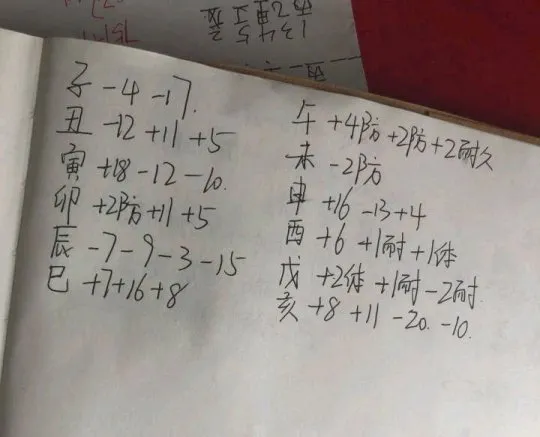 子 -4 -17.
丑 -12 +11 +5
寅 +18 -12 -10.
卯 +2防 +11 +5
辰 -7 -9 -3 -15
巳 +7 +16 +8
午 +4防 +2防 +2耐久
未 -2防
申 +16 -13 +4
酉 +6 +1耐 +1体
戊 +2体 +1耐 -2耐
亥 +8 +11 -20. -10.